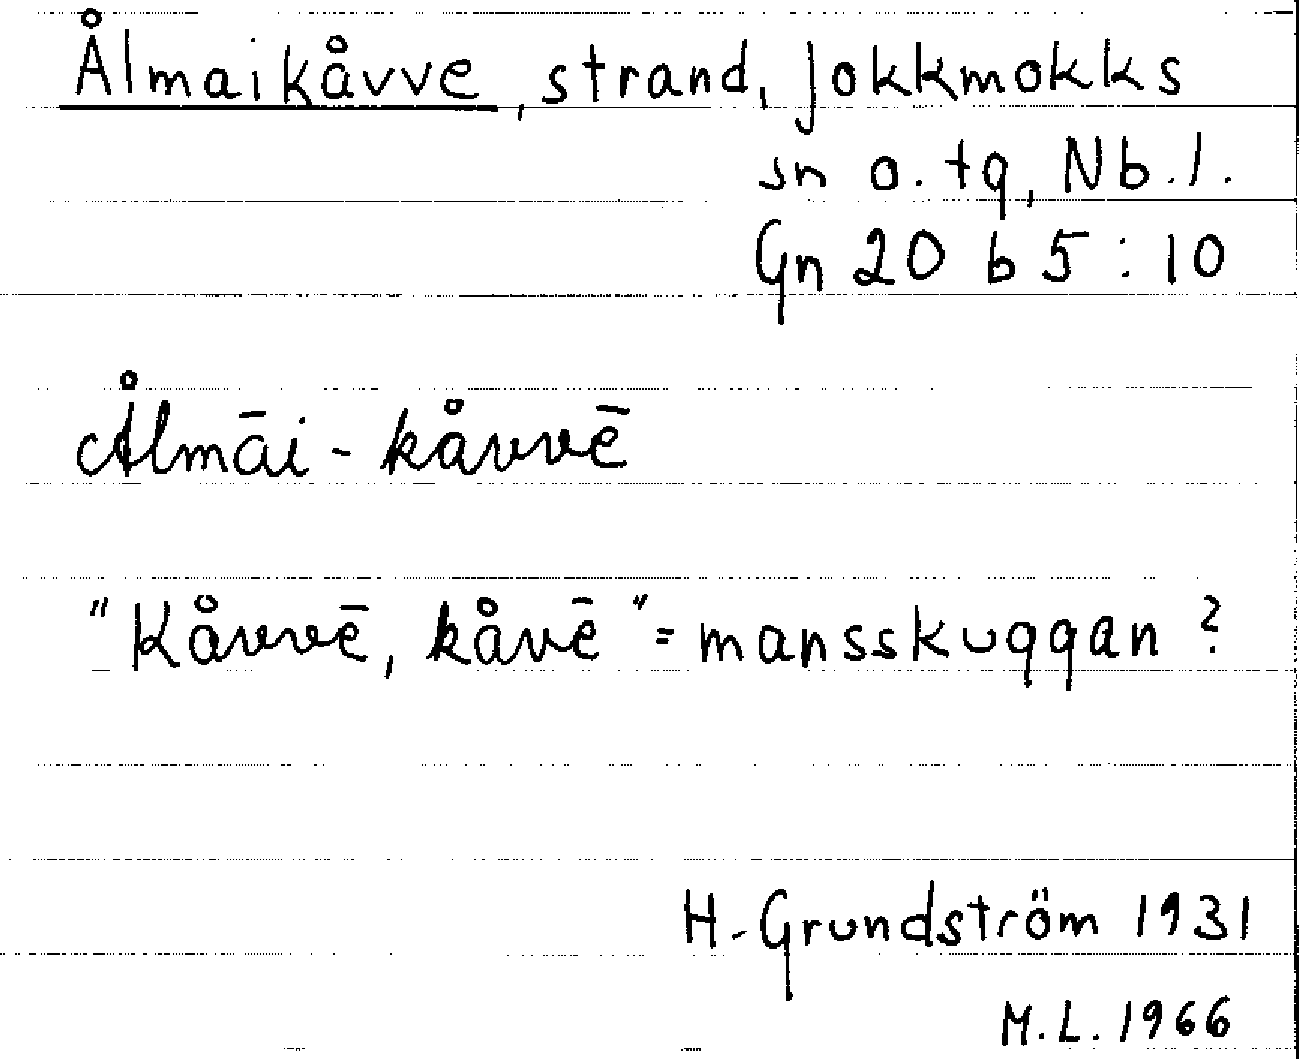 Ålmaikåvve, strand, Jokkmokks
sn o. tg, Nb.l.
Gn 20 b 5:10
Ålmāi-kåvvē
"Kåvvē, kåvē" = mansskuggan?
H. Grundström 1931
M.L. 1966